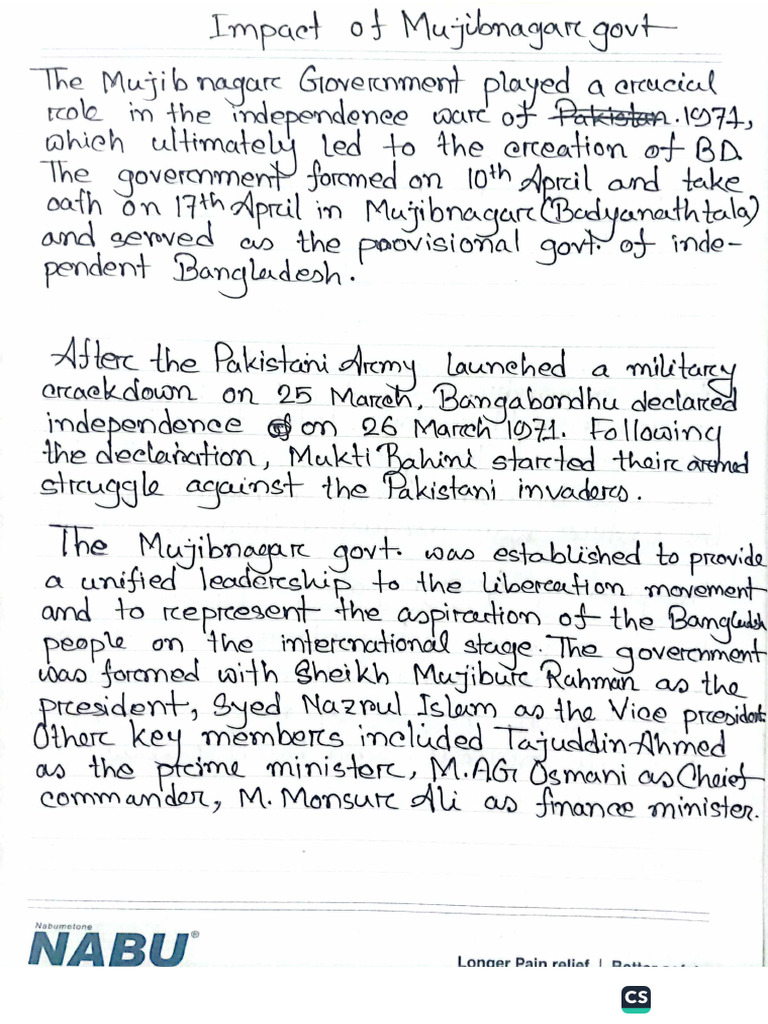 Impact of Mujibnagar govt
The Mujibnagar Government played a crucial
role in the independence war of Pakistan. 1971,
which ultimately led to the creation of BD.
The government formed on 10th April and take
oath on 17th April in Mujibnagar (Badyanathtala)
and served as the provisional govt. of inde-
pendent Bangladesh.
After the Pakistani Army launched a military
crackdown on 25 March, Bangabondhu declared
independence on 26 March 1971. Following
the declaration, Mukti Bahini started their armed
struggle against the Pakistani invaders.
The Mujibnagar govt. was established to provide
a unified leadership to the liberation movement
and to represent the aspiration of the Bangladesh
people on the international stage. The government
was formed with Sheikh Mujibur Rahman as the
president, Syed Nazrul Islam as the Vice president.
Other key members included Tajuddin Ahmed
as the prime minister, M.AG Osmani as Cheief
commander, M. Monsur Ali as finance minister.
Nabumetone
NABU®
Longer Pain relief |
CS